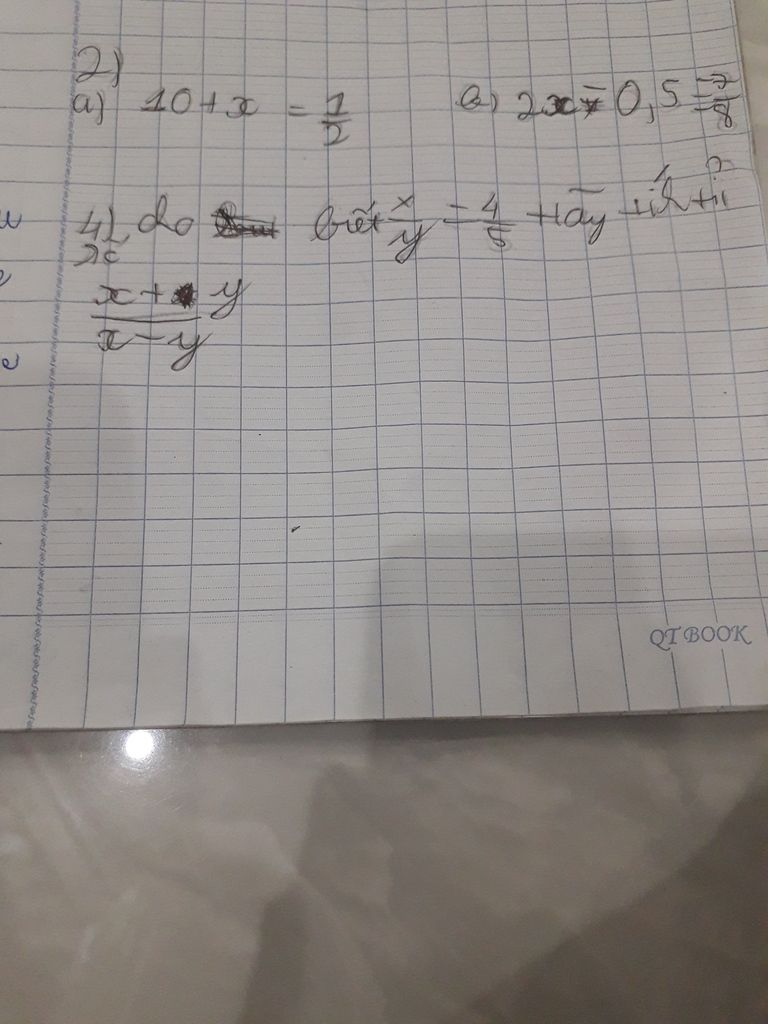 2)
a) 10 + x = 1/2 a) 2x - 0,5 = -7/8
4) cho biết x/y = 4/5 Hãy tính tỉ
số
x + y / x - y
QTBOOK